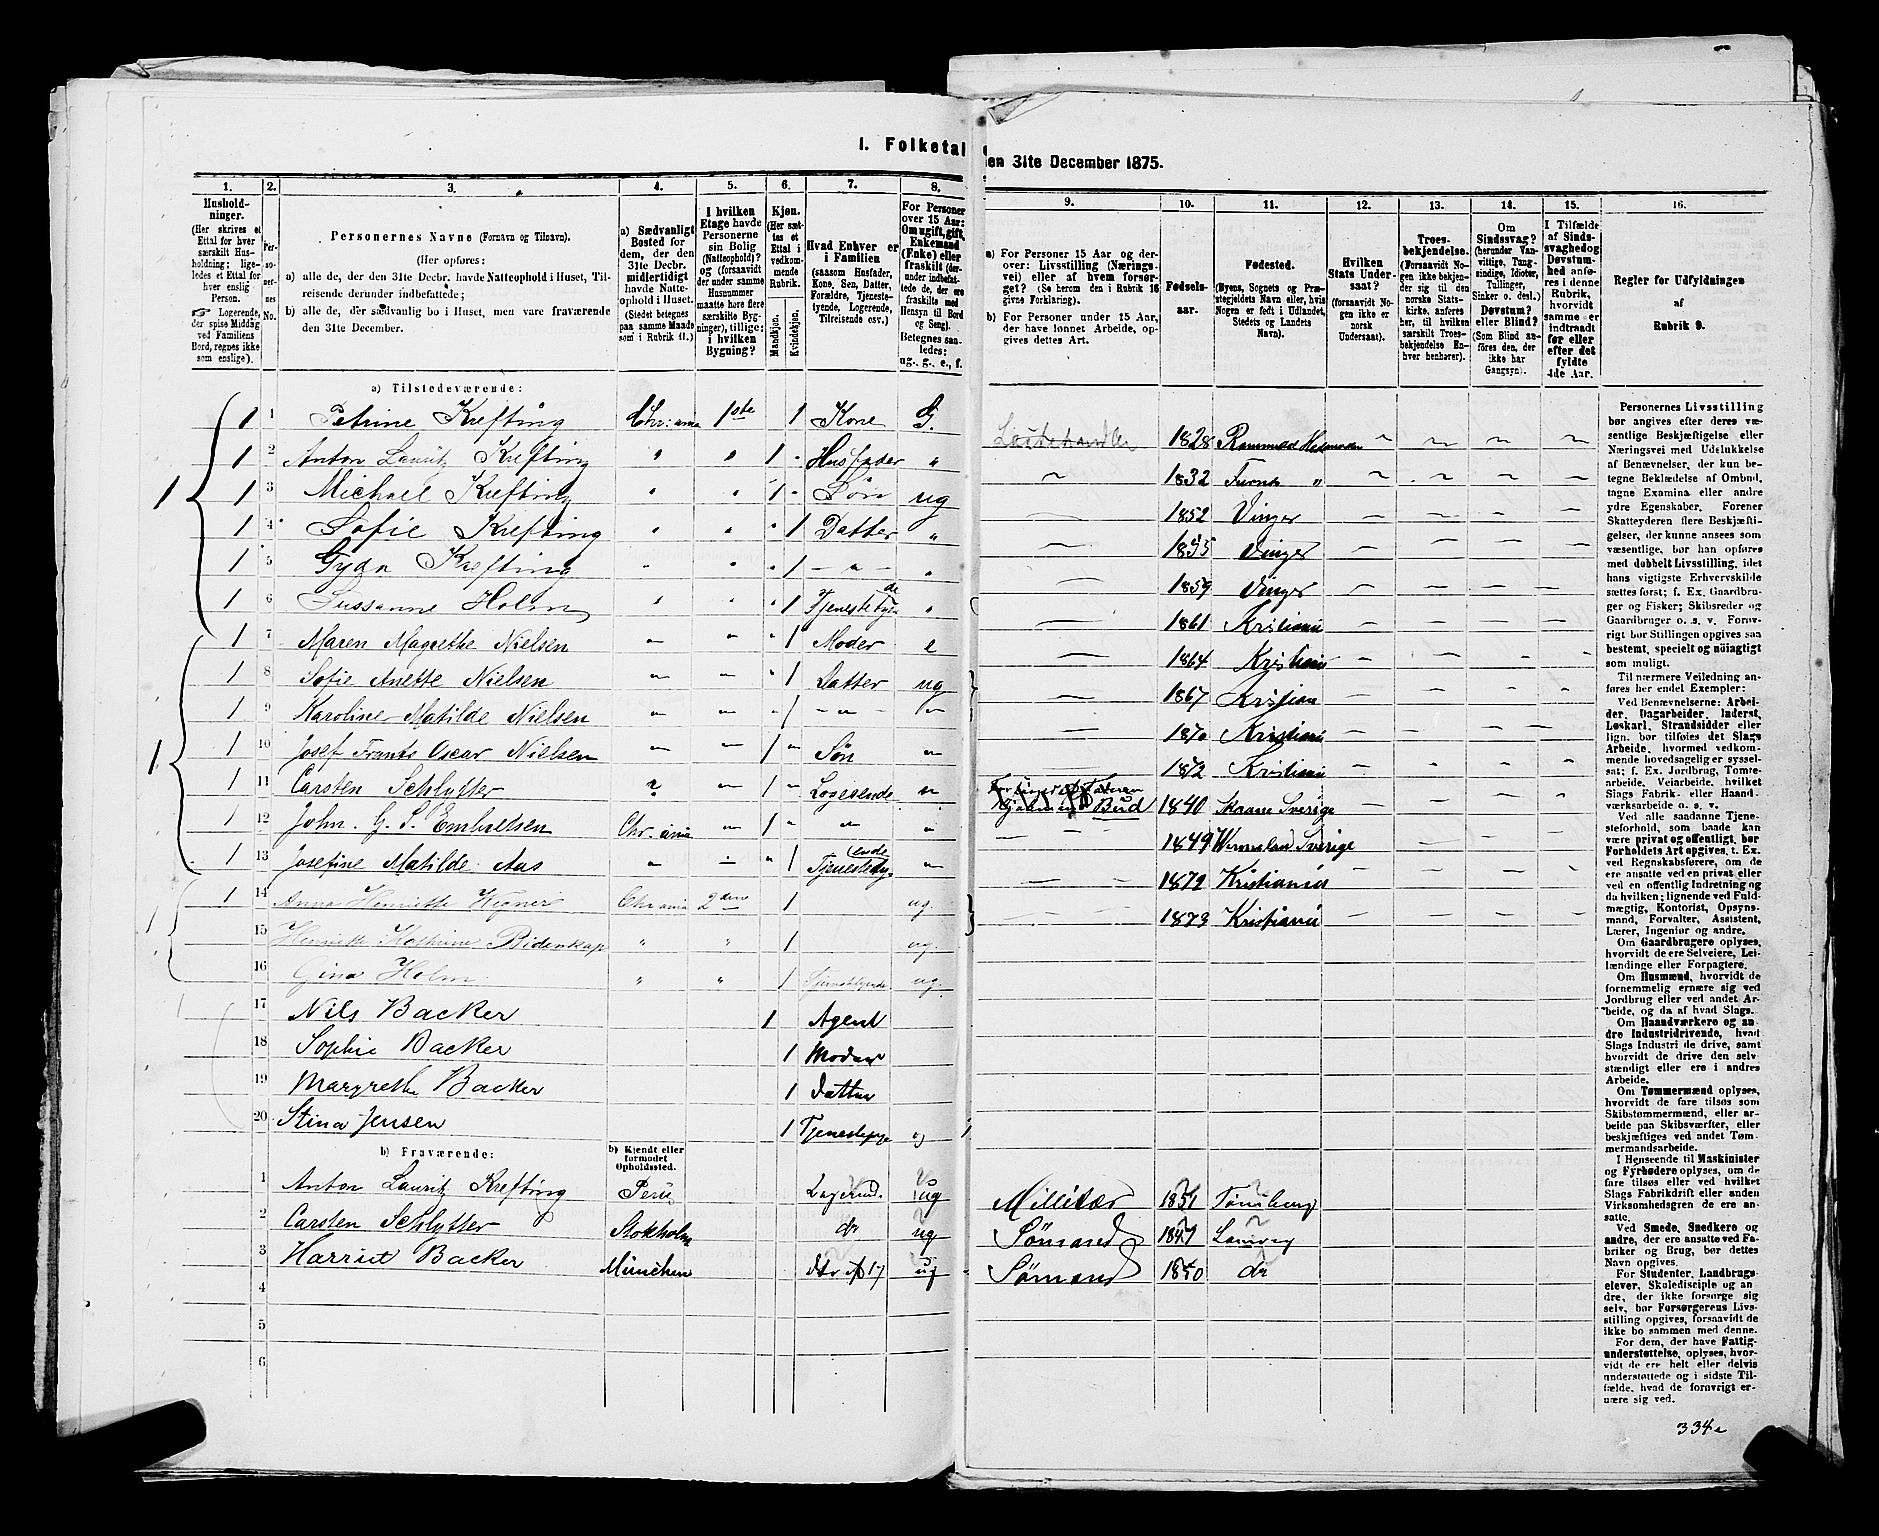 1. Folketal
en 31te December 1875.
1. 2. 3. 4. 5. 6. 7. 8.
Husholdninger. (Her skrives et Ettal for hver særskilt Husholdning; ligeledes et Ettal for hver enslig Person.
Logerende, der spise Middag ved Familiens Bord, regnes ikke som enslige).
Personernes No.
Personernes Navne (Fornavn og Tilnavn).
(Her opføres:
a) alle de, der den 31te Decbr. havde Natteophold i Huset, Tilreisende derunder indbefattede;
b) alle de, der sædvanlig bo i Huset, men vare fraværende den 31te December.
a) Sædvanligt Bosted for dem, der den 31te Decbr. midlertidigt havde Natteophold i Huset. (Stedet betegnes paa samme Maade som i Rubrik 11.)
I hvilken Etage havde Personerne sin Bolig (Natteophold)? og (forsaavidt der under samme Husnummer maatte høre flere særskilte Bygninger), tillige: i hvilken Bygning?
Kjøn. (Her sættes et Ettal i vedkommende Rubrik.)
Mandkjøn. Kvindekjøn.
Hvad Enhver er i Familien (saasom Husfader, Kone, Søn, Datter, Forældre, Tjenestetyende, Logerende, Tilreisende osv.)
For Personer over 15 Aar: Om ugift, gift, Enkemand (Enke) eller fraskilt
Betegnes saaledes: ug., g., e., f.
a) Tilstedeværende:
1 1 Petrine Krefting Chr: ania 1ste 1 Kone G.
1 2 Anton Lauritz Krefting " " 1 Husfader "
1 3 Michael Krefting " " 1 Søn ug
1 4 Sofie Krefting " " 1 Datter "
1 5 Gyda Krefting " " 1 — " — "
1 6 Sussanne Holm " " 1 Tjenestetyende "
1 7 Maren Magrethe Nielsen " " 1 Moder e
1 8 Sofie Anette Nielsen " " 1 Datter ug
1 9 Karoline Matilde Nielsen " " 1 — " — "
1 10 Josef Frants Oscar Nielsen " " 1 Søn "
1 11 Carsten Schlytter ? " 1 Logerende "
1 12 John. G. S. Embretsen Chr. ania " 1 " "
1 13 Josefine Matilde Aas " " 1 Tjenestety.ende "
1 14 Anna Henriette Chr ania 2den 1 ug.
15 Henriette Kathrine Bidenkap " " 1 ug.
16 Gina Holm " " 1 Tjenestetyende ug
17 Nils Backer 1 Agent
18 Sophie Backer 1 Moder
19 Margrethe Backer 1 datter
20 Stina Jensen 1 Tjenestepige ug
b) Fraværende:
b) Kjendt eller formodet Opholdssted.
1 Anton Lauritz Krefting Logerend. ug
2 Carsten Schlytter Stokholm do ug
3 Harriet Backer München dtr af 17 ug
4
5
6
9. 10. 11. 12. 13. 14. 15. 16.
a) For Personer 15 Aar og derover: Livsstilling (Næringsvei) eller af hvem forsørget? (Se herom den i Rubrik 16 givne Forklaring).
b) For Personer under 15 Aar, der have lønnet Arbeide, opgives dettes Art.
Fødselsaar.
Fødested. (Byens, Sognets og Præstegjeldets Navn eller, hvis Nogen er født i Udlandet, Stedets og Landets Navn).
Hvilken Stats Undersaat? (forsaavidt Nogen ikke er norsk Undersaat).
Troesbekjendelse. (Forsaavidt Nogen ikke bekjender sig til den norske Statskirke, anføres her, til hvilken særskilt Troesbekjendelse Enhver henhører).
Om Sindssvag? (herunder Vanvittige, Tungsindige, Idioter, Tullinger, Sinker o. desl.) Døvstum? eller Blind? (Som Blind anføres den, der ikke har Gangsyn).
I Tilfælde af Sindssvaghed og Døvstumhed anføres i denne Rubrik, hvorvidt samme er indtraadt før eller efter det fyldte 4de Aar.
Regler for Udfyldningen af Rubrik 9.
1828
1832
1852 Vinger
1855 Vinger
1859 Vinger
1861 Kristiania
1864 Kristiania
1867 Kristian
1870 Kristiania
1872 Kristiania
Bud 1840 Skaane Sverige
1849 Wermelan Sverige
1872 Kristiania
1873 Kristiania
Millitær 1851 Tønsberg
Sømand 1847
Sømand 1850 do
Personernes Livsstilling bør angives efter deres væsentlige Beskjæftigelse eller Næringsvei med Udelukkelse af Benævnelser, der kun betegne Beklædelse af Ombud, tagne Examina eller andre ydre Egenskaber. Forener Skatteyderen flere Beskjæftigelser, der kunne ansees som væsentlige, bør han opføres med dobbelt Livsstilling, idet hans vigtigste Erhvervskilde sættes først; f. Ex. Gaardbruger og Fisker; Skibsreder og Gaardbruger o. s. v. Forøvrigt bør Stillingen opgives saa bestemt, specielt og nøiagtigt som muligt.
Til nærmere Veiledning anføres her endel Exempler:
Ved Benævnelserne: Arbeider, Dagarbeider, Inderst, Løskarl, Strandsidder eller lign. bør tilføies det Slags Arbeide, hvormed vedkommende hovedsagelig er sysselsat; f. Ex. Jordbrug, Tomtearbeide, Veiarbeide, hvilket Slags Fabrik- eller Haandværksarbeide o. s. v.
Ved alle saadanne Tjenesteforhold, som baade kan være privat og offentligt, bør Forholdets Art opgives, t. Ex. ved Regnskabsførere, om de ere ansatte ved en privat eller ved en offentlig Indretning og da hvilken; lignende ved Fuldmægtig, Kontorist, Opsynsmand, Forvalter, Assistent, Lærer, Ingeniør og andre.
Om Gaardbrugere oplyses, hvorvidt de ere Selveiere, Leilændinge eller Forpagtere.
Om Husmænd, hvorvidt de fornemmelig ernære sig ved Jordbrug eller ved andet Arbeide, og da af hvad Slags.
Om Haandværkere og andre Industridrivende, hvad Slags Industri de drive, samt hvorvidt de drive den selvstændigt eller ere i andres Arbeide.
Om Tømmermænd oplyses, hvorvidt de fare tilsøs som Skibstømmermænd, eller arbeide paa Skibsværfter, eller beskjæftiges ved andet Tømmermandsarbeide.
I Henseende til Maskinister og Fyrbødere oplyses, om de fare tilsøs eller ved hvilket Slags Fabrikdrift eller anden Virksomhedsgren de ere ansatte.
Ved Smede, Snedkere og andre, der ere ansatte ved Fabriker og Brug, bør dettes Navn opgives.
For Studenter, Landbrugselever, Skoledisciple og andre, der ikke forsørge sig selv, bør Forsørgerens Livsstilling opgives, forsaavidt de ikke bo sammen med denne.
For dem, der have Fattigunderstøttelse, oplyses, hvorvidt de ere helt eller delvis understøttede og i sidste Tilfælde, hvad de forøvrigt ernære sig ved.
334